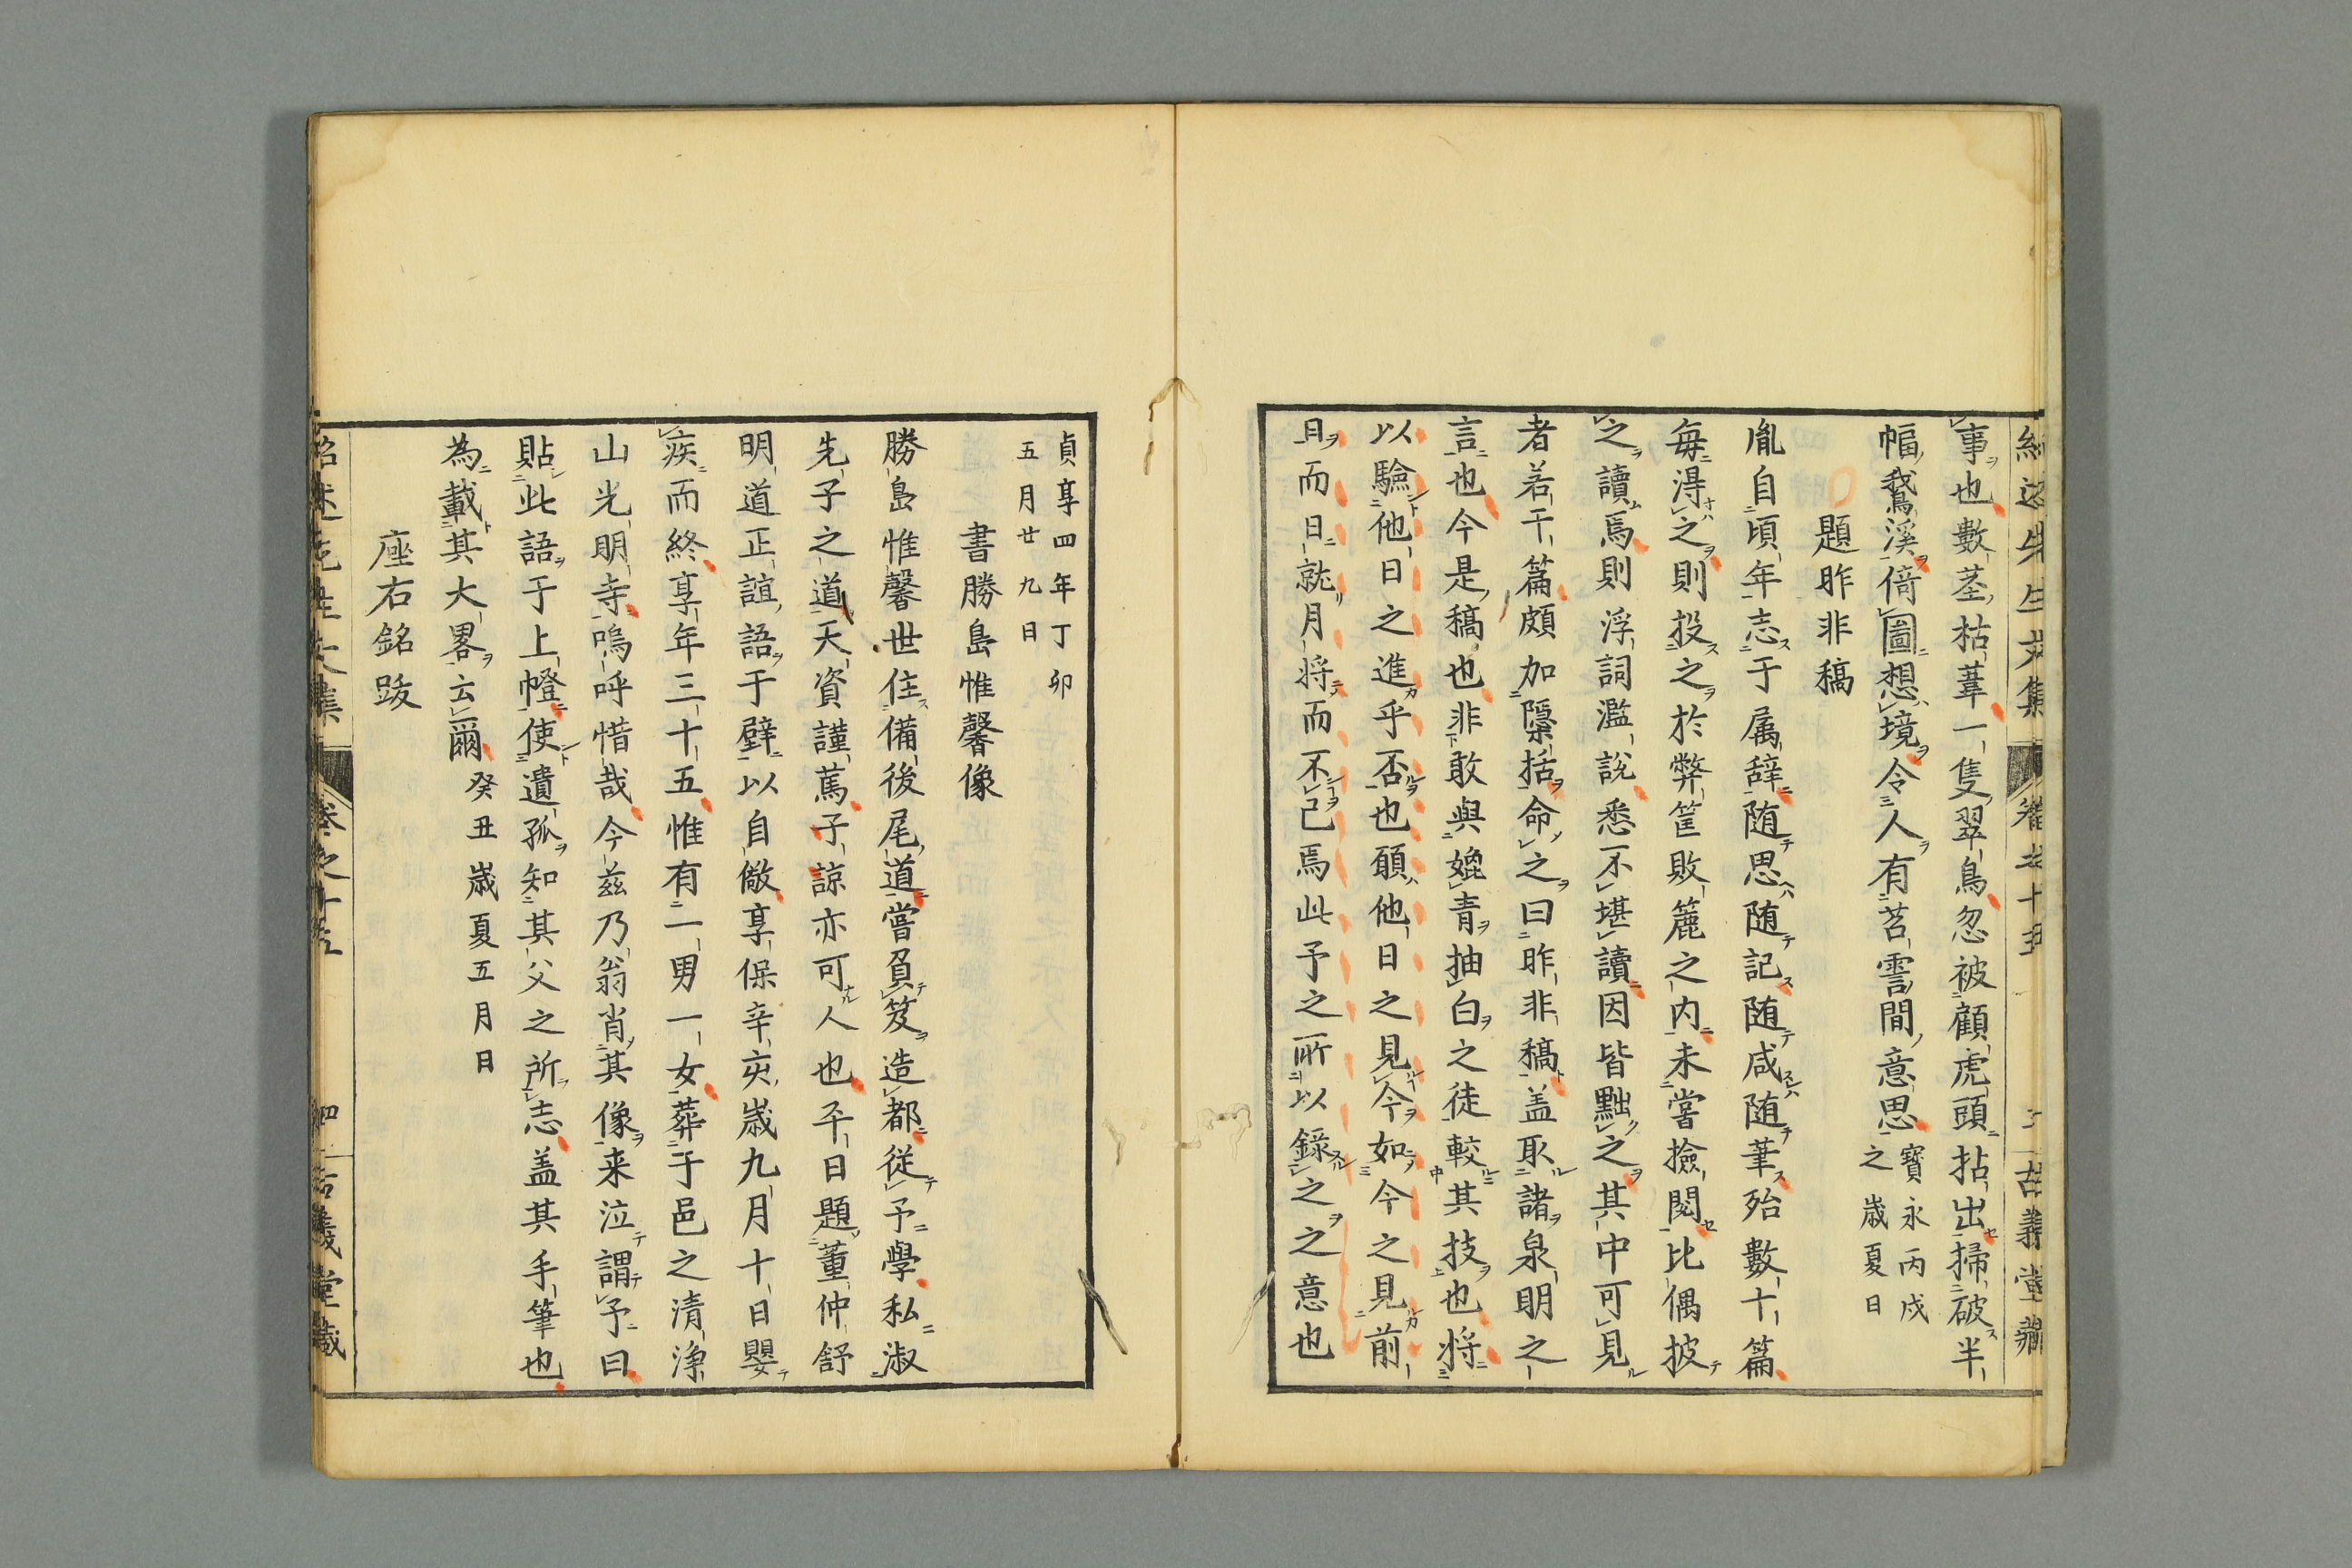 事也數莖枯葦一隻翠鳥忽被顧虎頭拈出掃破半
幅鵞溪倚圖想境令人有苕霅間意思寶永丙戌
之歲夏日
題昨非稿
胤自頃年志于属辞随思随記随咸随筆殆數十篇
每得之則投之於弊筐敗簏之内未嘗撿閲比偶披
之讀焉則浮詞濫說悉不堪讀因皆黜之其中可見
者若干篇頗加隱括命之曰昨非稿盖取諸泉明之
言也今是稿也非敢與媲青抽白之徒較其技也将
以驗他日之進乎否也願他日之見今如今之見前
日而日就月将而不已焉此予之所以錄之之意也
貞享四年丁卯
五月廿九日
書勝島惟馨像
勝島惟馨世住備後尾道嘗負笈造都従予學私淑
先子之道天資謹篤子諒亦可人也平日題董仲舒
明道正誼語于壁以自儆享保辛亥歲九月十日嬰
疾而終享年三十五惟有二男一女葬于邑之清淨
山光明寺嗚呼惜哉今茲乃翁肖其像来泣謂予曰
貼此語于上幨使遺孤知其父之所志盖其手筆也
為載其大畧云爾癸丑歲夏五月日
座右銘跋
紹述先生文集 卷之十五 四 古義堂藏